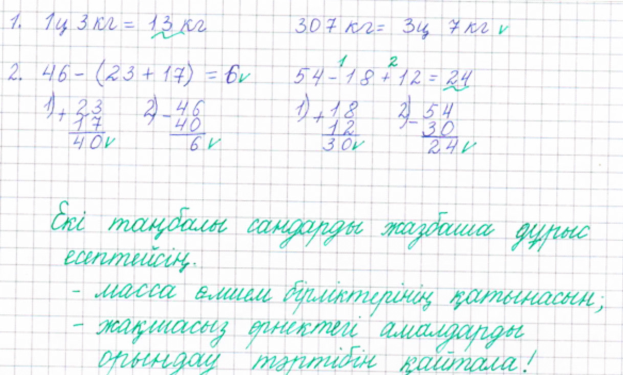 1. 1ц 3 кг = 13 кг 307 кг = 3ц 7 кг v
1 2
2. 46 - (23 + 17) = 6 v 54 - 18 + 12 = 24
1) + 23 2) - 46 1) + 18 2) - 54
17 40 12 30
40 v 6 v 30 v 24 v
Екі таңбалы сандарды жазбаша дұрыс
есептейсің.
- масса өлшем бірліктерінің қатынасын;
- жақшасыз өрнектегі амалдарды
орындау тәртібін қайтала!